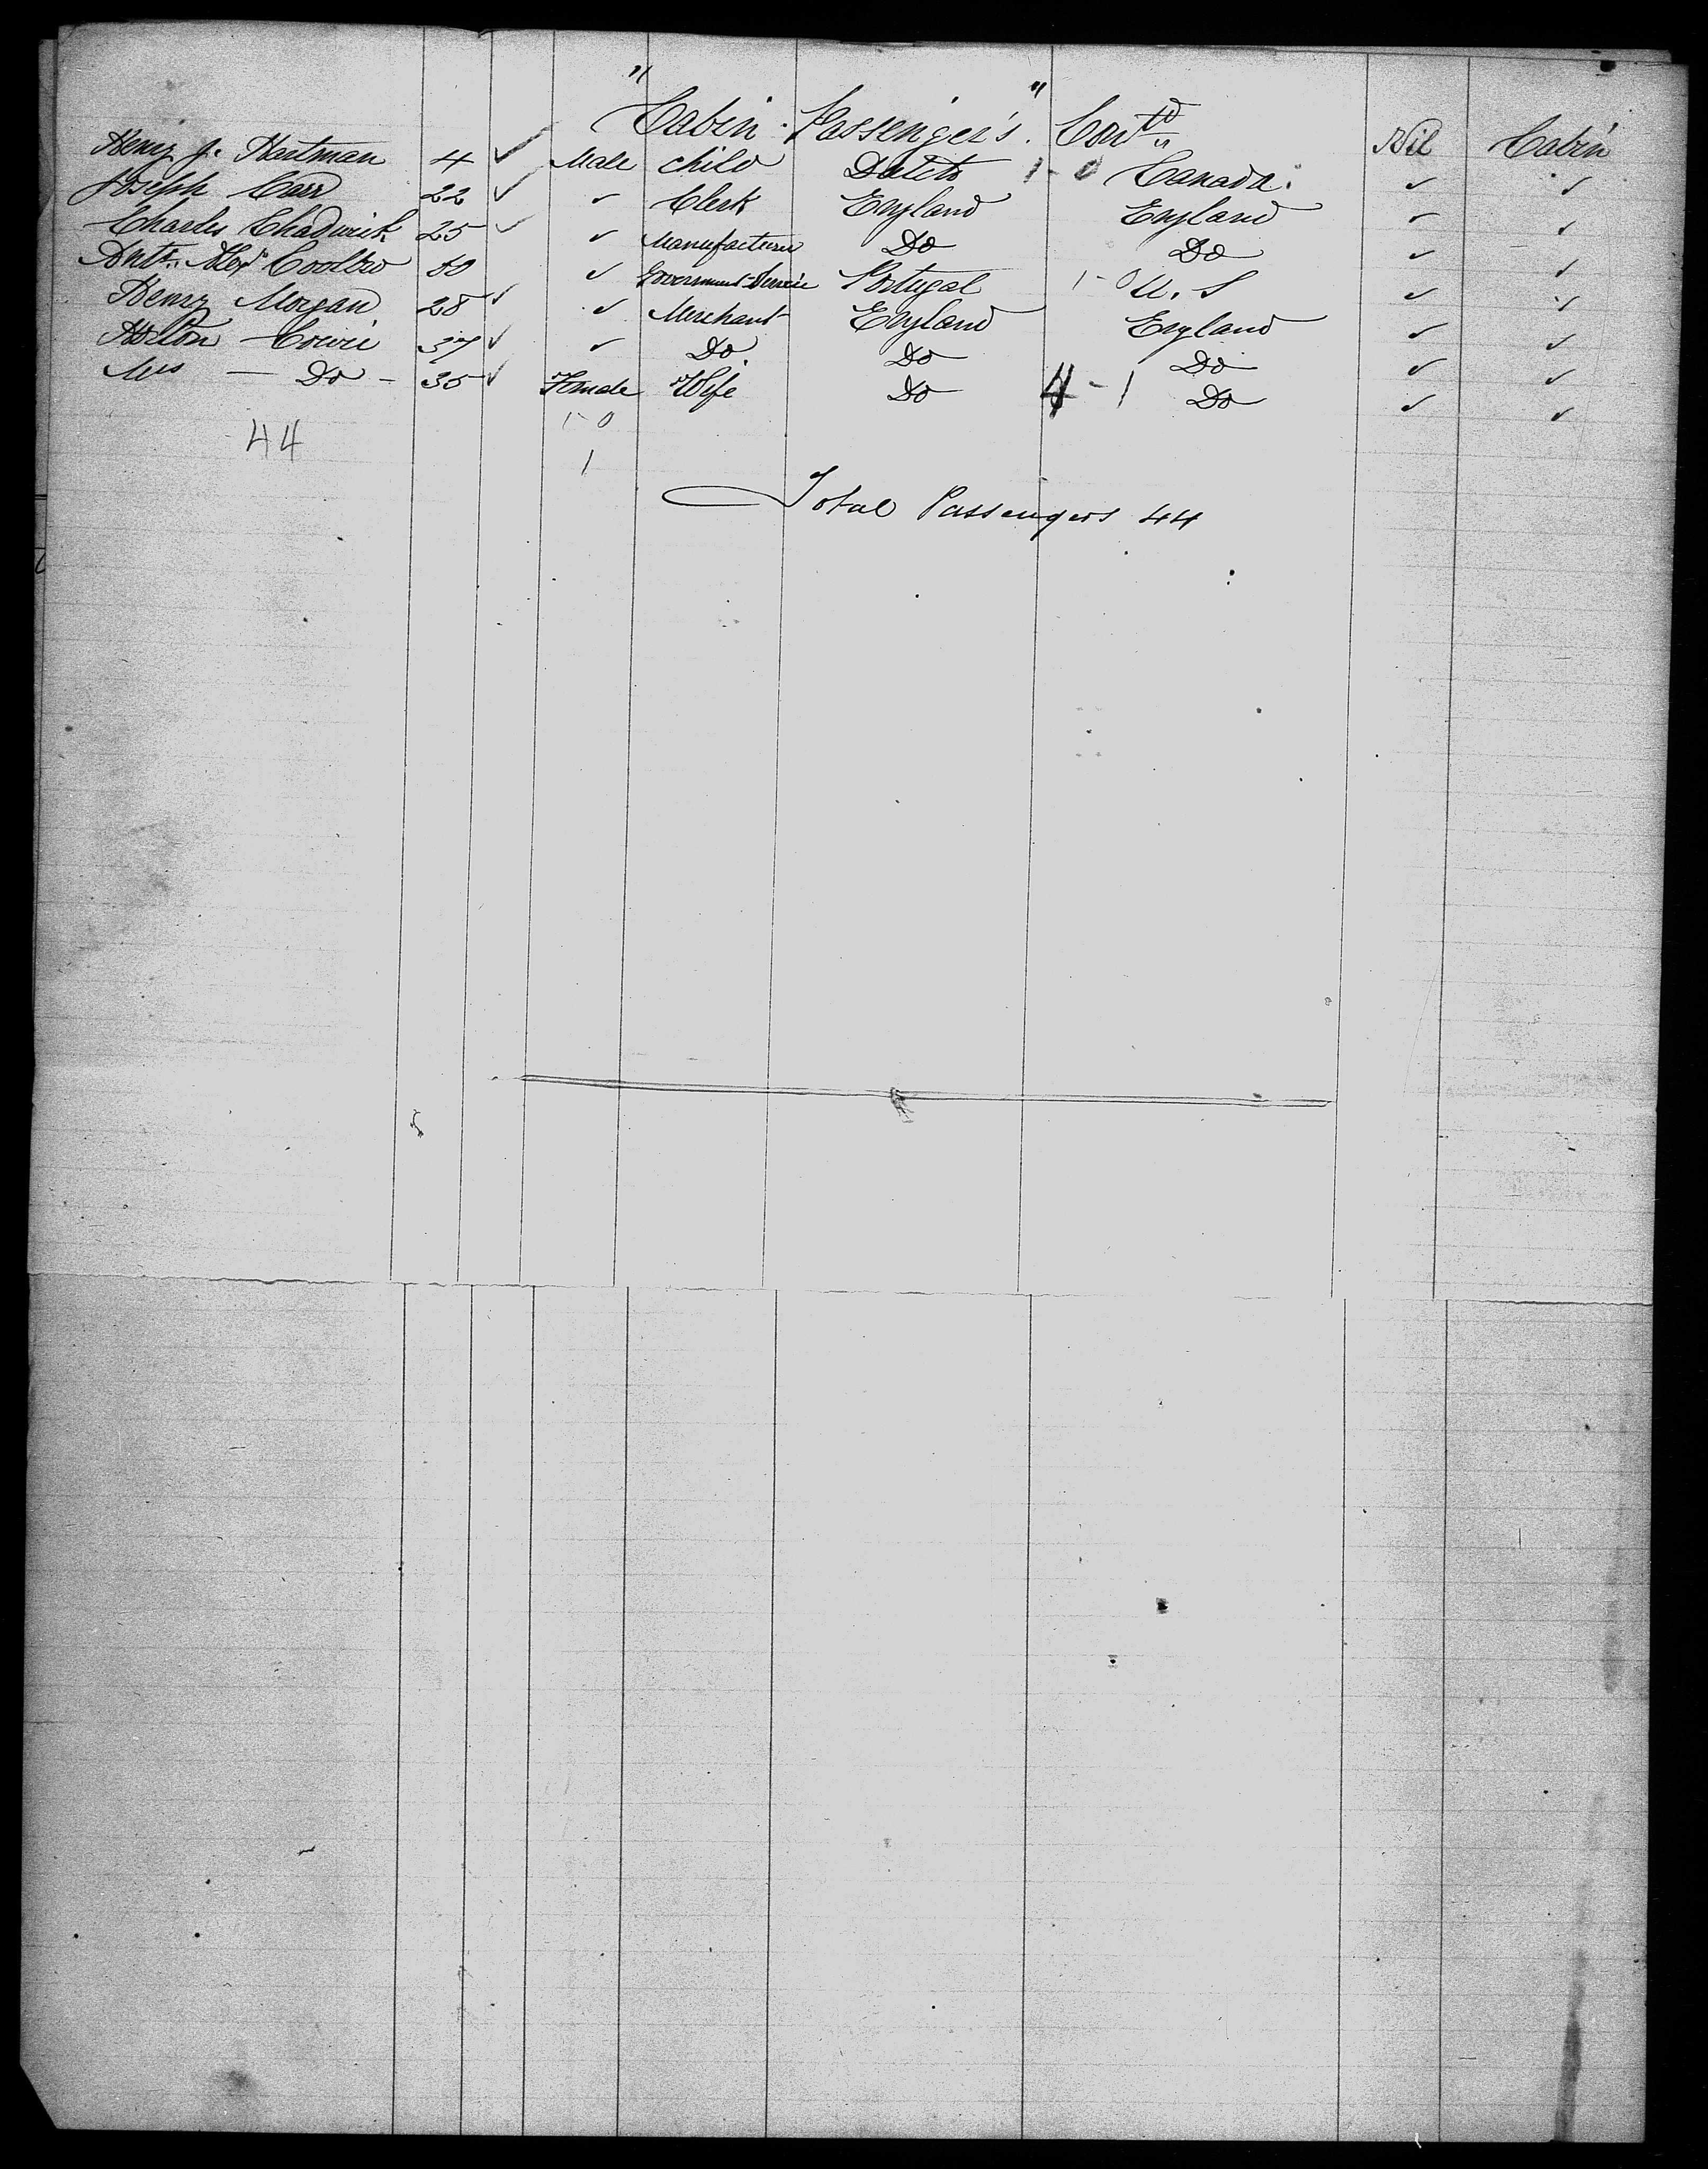 "Cabin Passenger's." Contd
Henry J. Hartman 4 ✓ Male Child 1-0 Canada. Nil Cabin
Joseph Carr 22 ✓ ✓ Clerk England England ✓ ✓
Charles Chadwick 25 ✓ ✓ Manufacturer Do Do ✓ ✓
✓ Government Service Portugal 1-0 U.S ✓ ✓
Henry Morgan 28 ✓ ✓ Merchant England England ✓ ✓
37 ✓ ✓ Do Do Do ✓ ✓
Mrs — Do — 35 ✓ Female Wife Do 4-1 Do ✓ ✓
1-0
44
1
Total Passengers 44